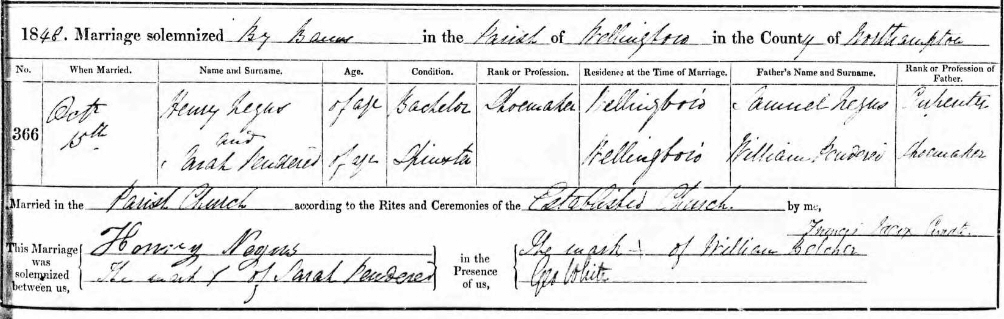 1848. Marriage solemnized By Banns in the Parish of Wellingboro in the County of Northampton
No. When Married. Name and Surname. Age. Condition. Rank or Profession. Residence at the Time of Marriage. Father's Name and Surname. Rank or Profession of Father.
366 Octr 15th Henry Negus of age Bachelor Shoemaker Wellingboro Samuel Negus Carpenter
and
Sarah Pendered of age Spinster Wellingboro William Pendered Shoemaker
Married in the Parish Church according to the Rites and Ceremonies of the Established Church. by me,
Francis
This Marriage was solemnized between us, Henry Negus in the Presence of us, The mark of William Belcher
The mark of Sarah Pendered Geo White